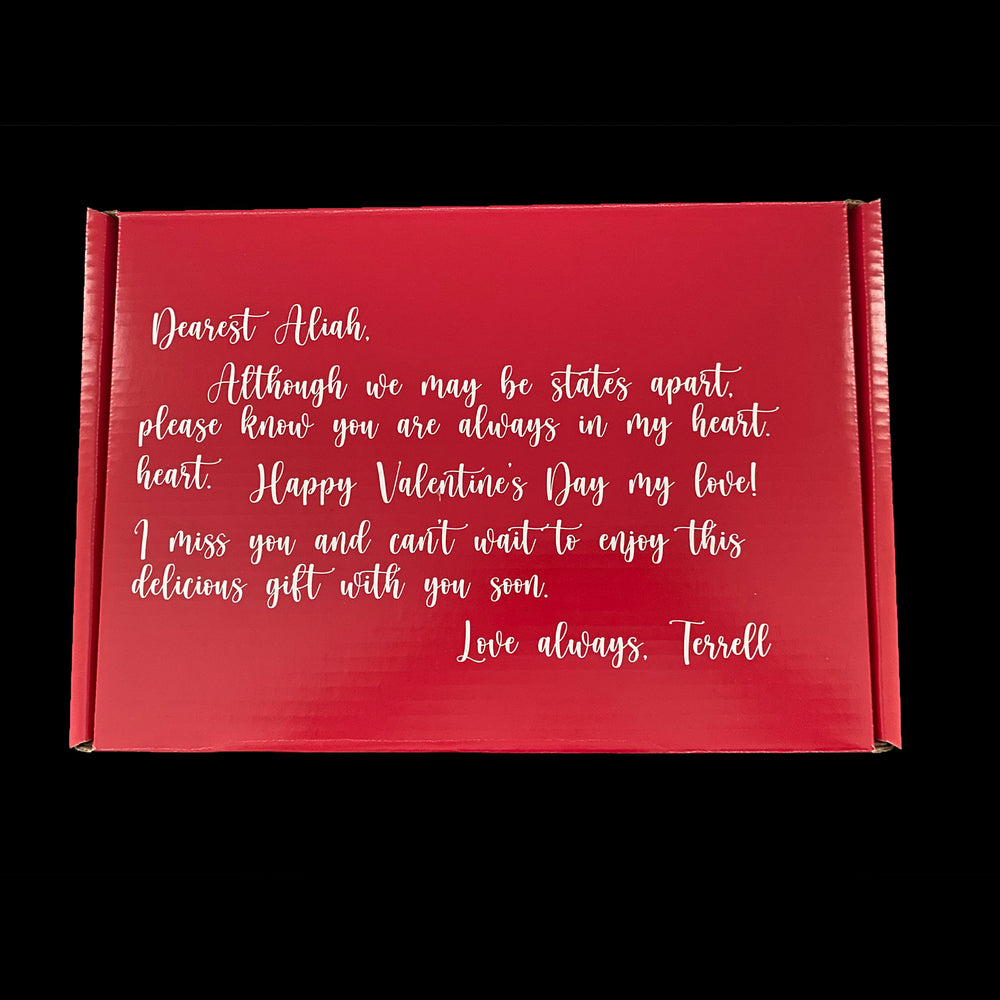 Dearest Aliah,
Although we may be states apart,
please know you are always in my heart.
heart. Happy Valentine's Day my love!
I miss you and can't wait to enjoy this
delicious gift with you soon.
Love always, Terrell